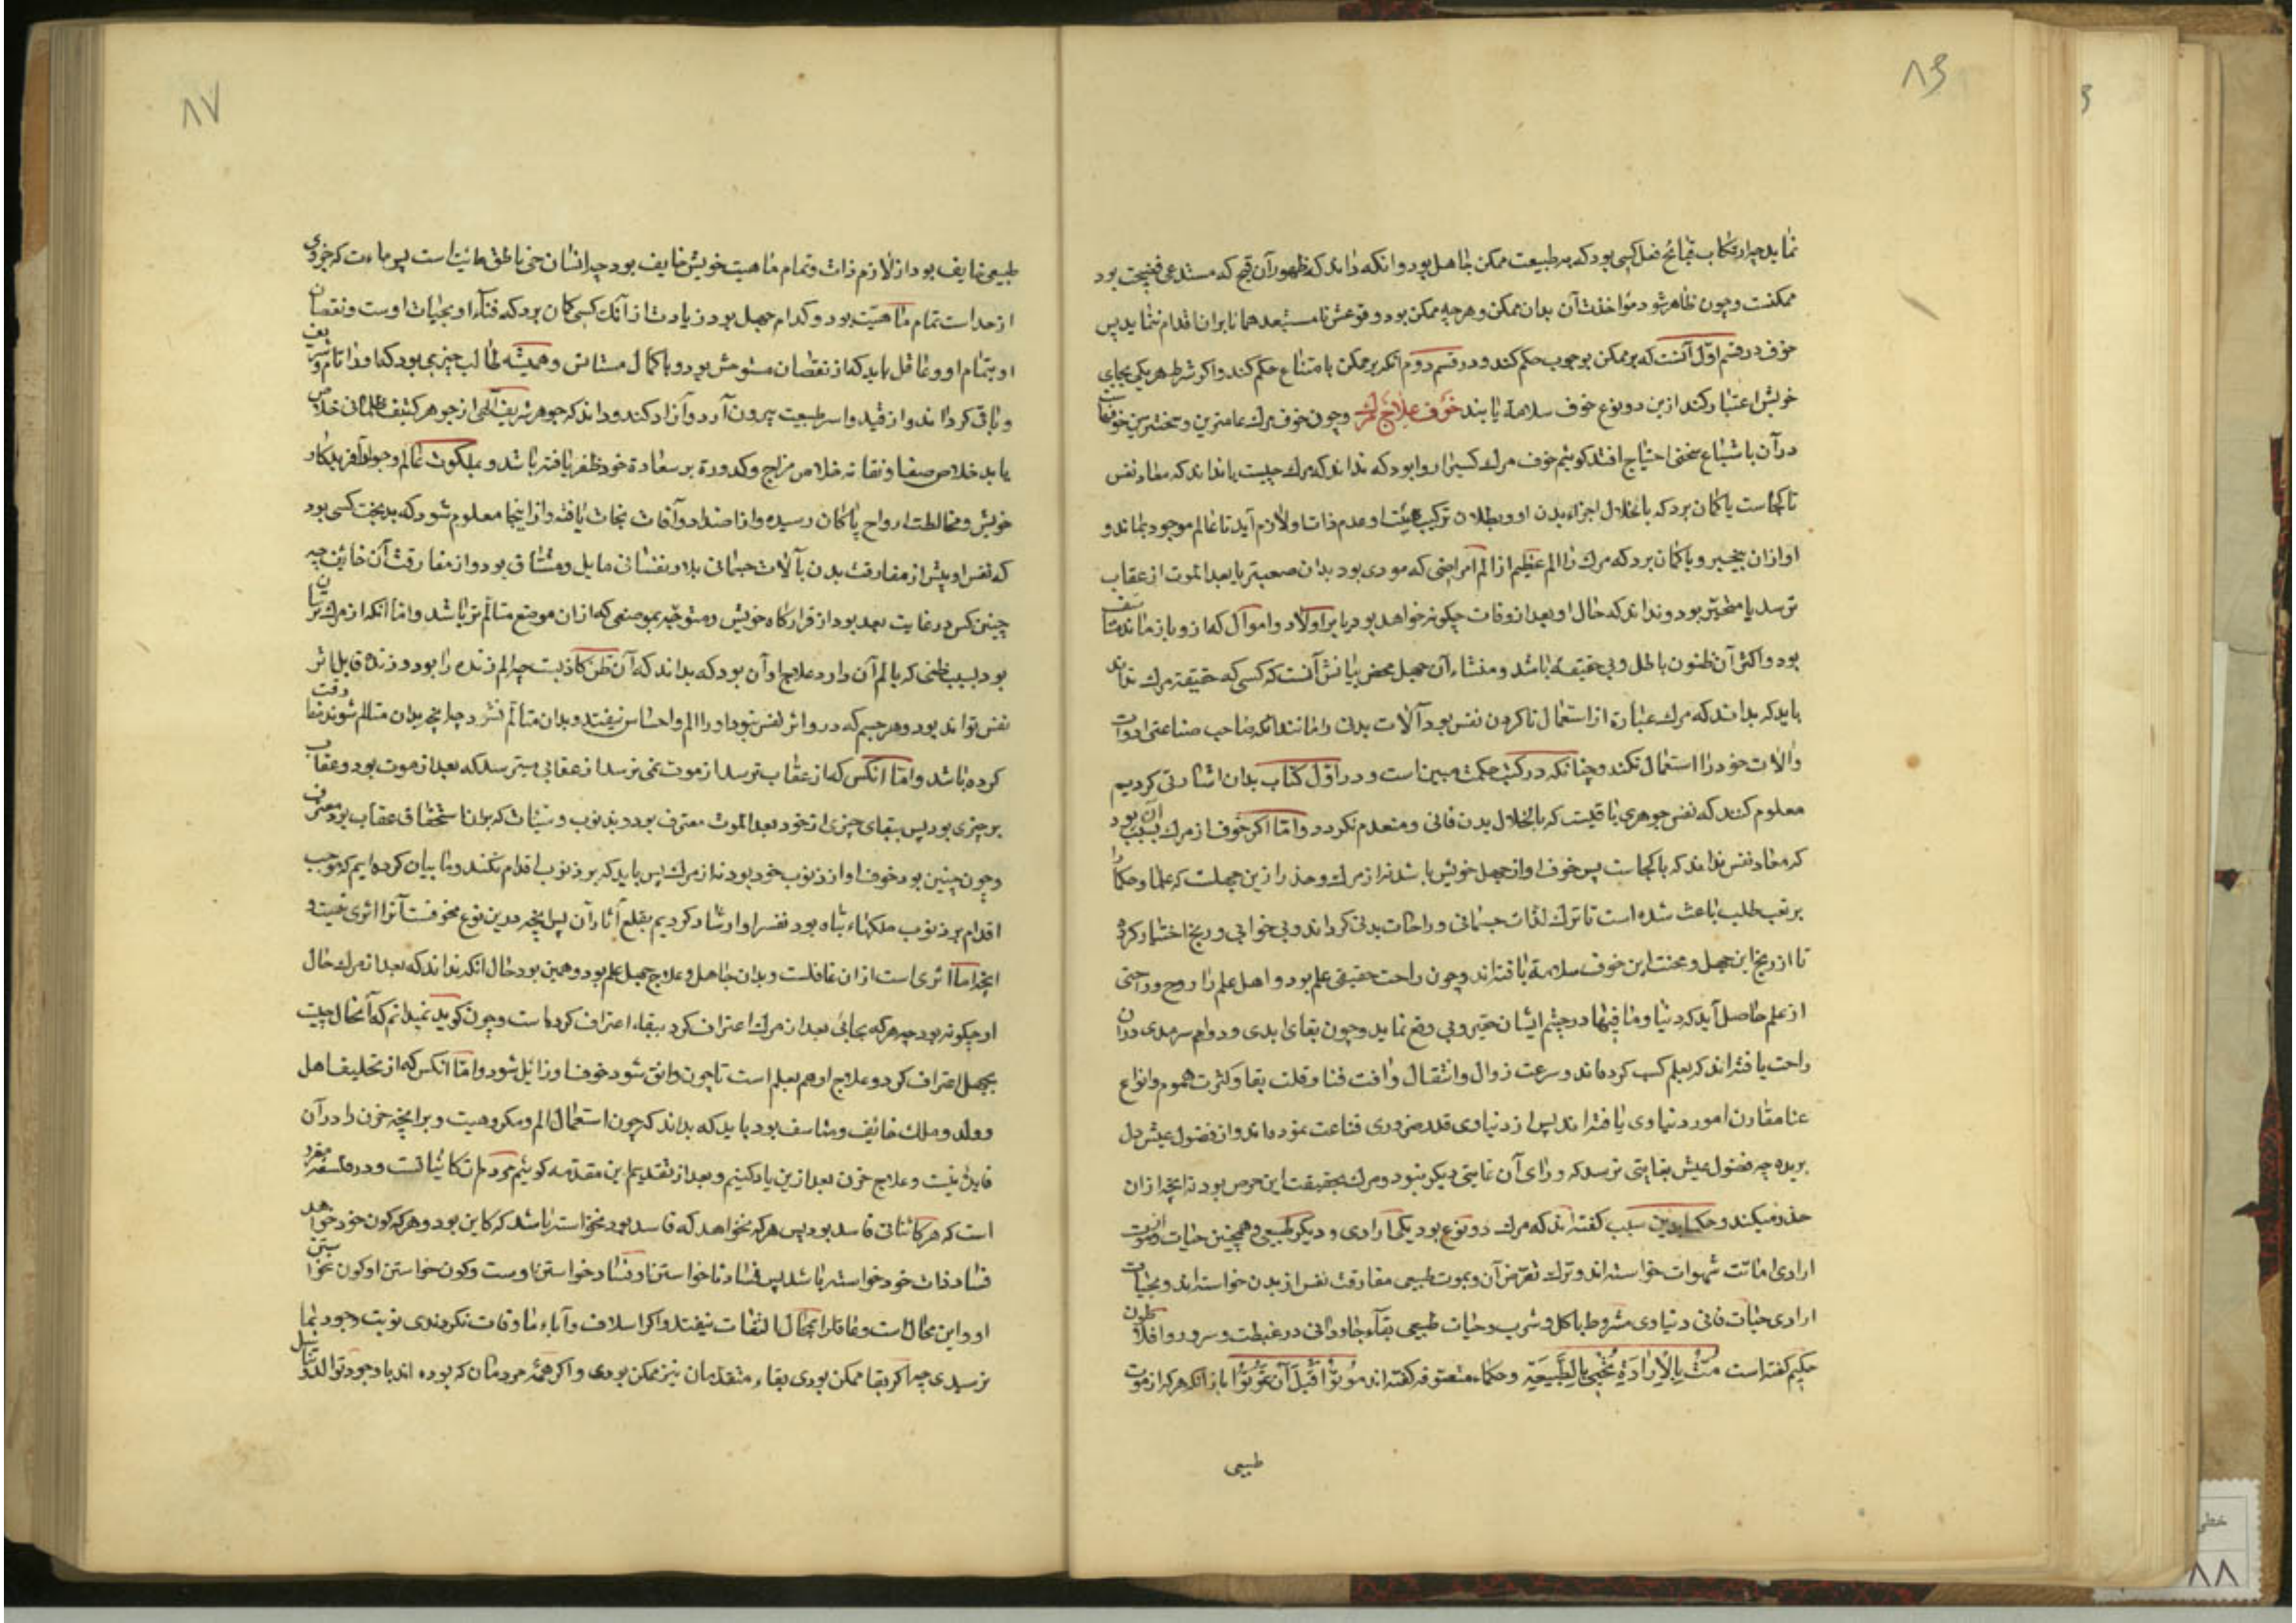 ۸۶
نماید چه ارتکاب قبائح فعل کسی بود که بر طبیعت ممکن جاهل بود و انکه داند که ظهور آن قبح که مستدعی فضیحت بود
ممکنست و چون ظاهر شود مؤاخذت آن بدان ممکن و هر چه ممکن بود وقوعش نامستبعد همانا بران اقدام ننماید پس
خوف در قسم اول آنست که بر ممکن بوجوب حکم کند و در قسم دوم آنکه بر ممکن بامتناع حکم کند و اکر شرط هر یکی بجای
خویش اعتبار کند ازین دو نوع خوف سلامة یابند خوف علاج مرك و چون خوف مرك عامترین و سختترین خوفهاست
در آن باشباع سخنی احتیاج افتد کوییم خوف مرك کسیرا روا بود که نداند که مرك چیست یا نداند که معاد نفس
تا کجاست یا کمان برد که بانحلال اجزاء بدن او و بطلان ترکیب هیئت او عدم ذات او لازم آید تا عالم موجود بماند و
او ازان بیخبر و یا کمان برد که مرك را الم عظیم از الم امراضی که مودی بود بدان صعبتر یا بعد الموت از عقاب
ترسد یا متحیر بود و نداند که حال او بعد از وفات چکونه خواهد بود یا بر اولاد و اموال که ازو باز ماند متاسف
بود و اکثر آن ظنون باطل و بی حقیقة باشد و منشاء آن جهل محض بیانش آنست که کسی که حقیقة مرك نداند
باید که بداند که مرك عبارة از استعمال ناکردن نفس بود آلات بدن را مانند انکه صاحب صناعتی ادوات
و آلات خود را استعمال نکند و چنانکه در کتب حکمت مبین است و در اول کتاب بدان اشارتی کردیم
معلوم کند که نفس جوهری باقیست که بانحلال بدن فانی و منعدم نکردد و اما اکر خوف از مرك بسبب آن بود
که معاد نفس نداند که با کجاست پس خوف او از جهل خویش باشد نه از مرك و حذر ازین جهلست که علما و حکما را
بر تعب طلب باعث شده است تا ترك لذات جسمانی و راحات بدنی کرده اند و بی خوابی و رنج اختیار کرده
تا از رنج این جهل و محنت این خوف سلامة یافته اند و چون راحت حقیقی علم بود و اهل علم را روح و راحتی
از علم حاصل آید که دنیا و ما فیها در چشم ایشان حقیر و بی وقع نماید و چون بقای ابدی و دوام سرمدی در ان
راحت یافته اند که بعلم کسب کرده اند و سرعت زوال و انتقال و افت فنا و قلت بقا و کثرت هموم و انواع
عنا مقارن امور دنیاوی یافته اند پس از دنیاوی قدر ضروری قناعت نموده اند و از فضول عیش دل
بریده چه فضول عیش بغایتی نرسد که ورای آن غایتی دیکر نبود و مرك بحقیقت این حرص بود نه انچه ازان
حذر میکند و حکما بدین سبب کفته اند که مرك دو نوع بود یکی ارادی و دیکر طبیعی و همچنین حیات و از موت
ارادی اماتت شهوات خواسته اند و ترك تعرض آن و بموت طبیعی مفارقت نفس از بدن خواسته اند و بحیات
ارادی حیات فانی دنیاوی مشروط باکل و شرب و حیات طبیعی بقآء جاودانی در غبطت و سرور و افلاطون
حکیم کفته است مُتْ بِالاِرادَةِ تُحْیی بِالطَّبیعَةِ و حکماء متصوفه کفته اند مُوتُوا قَبْلَ اَنْ تَمُوتُوا باز انکه هر که از موت
طبیعی
۸۷
طبیعی خایف بود از لازم ذات و تمام ماهیت خویش خایف بود چه انسان حی ناطق مائت است پس مائت که جزوی
از حد است تمام ماهیت بود و کدام جهل بود زیادت از آنك کسی کمان برد که فنآء او بحیات اوست و نقصان
او بتمام او و عاقل باید که از نقصان مستوحش بود و با کمال مستانس و همیشه طالب چیزی بود که او را تام و شریف
و باقی کرداند و از قید و اسر طبیعت بیرون آرد و آزاد کند و داند که جوهر شریف الهی از جوهر کثیف ظلمانی خلاص
یابد خلاص صفا و نقا نه خلاص مزاج و کدورة بر سعادة خود ظفر یافته باشد و بملکوت عالم و جوار آفریدکار
خویش و مخالطت ارواح پاکان رسیده و از اضداد و آفات نجات یافته و از اینجا معلوم شود که بدبخت کسی بود
که نفس او پیش از مفارقت بدن بآلات جسمانی و ملاذ نفسانی مایل و مشتاق بود و از مفارقت آن خائف چه
چنین کس در غایت بعد بود از قرارکاه خویش و متوجه بموضعی که ازان موضع متالم تر باشد و اما انکه از مرك ترسان
بود بسبب ظنی که بالم آن دارد علاج او آن بود که بداند که آن ظن کاذبست چه الم زنده را بود و زنده قابل اثر
نفس تواند بود و هر جسم که درو اثر نفس نبود او را الم و احساس نیفتد و بدان متالم نشود چه انچه بدان متالم شوند مفارقت
کرده باشد و اما انکس که از عقاب ترسد از موت نمی ترسد از عقابی میترسد که بعد از موت بود و عقاب
بر چیزی بود پس ببقای چیزی از خود بعد الموت معترف بود و بذنوب و سیئات که بدان استحقاق عقاب بود معترف
و چون چنین بود خوف او از ذنوب خود بود نه از مرك پس باید که بر ذنوب اقدام نکند و ما بیان کرده ایم که موجب
اقدام بر ذنوب ملکهاء تباه بود نفس را و ارشاد کردیم بقلع آثار آن پس انچه درین نوع مخوفست آنرا اثری نیست و
انچه اما اثری است ازان غافلست و بدان جاهل و علاج جهل علم بود و همین بود حال انکه نداند که بعد از مرك حال
او چکونه بود چه هر که بحالی بعد از مرك اعتراف کرد ببقاء اعتراف کرده است و چون کوید نمیدانم که آنحال چیست
بجهل اعتراف کرد و علاج او هم بعلم است تا چون واثق شود خوف او زائل شود و اما انکس که از تخلیف اهل
و ولد و ملك خائف و متاسف بود باید که بداند که چون استعمال الم و مکروهیت و بر انچه حزن را در آن
فایده نیست و علاج حزن بعد ازین یاد کنیم و بعد از تقدیم این مقدمه کوییم مردم از کائناتست و در فلسفه مقرر
است که هر کائناتی فاسد بود پس هر که نخواهد که فاسد بود نخواسته باشد که کاین بود و هر که کون خود خواهد
فساد ذات خود خواسته باشد پس فساد ناخواستن او فساد خواستن اوست و کون خواستن او کون نخواستن
او و این محال است و عاقل را بمحال التفات نیفتد و اکر اسلاف و آباء ما وفات نکردندی نوبت وجود بما
نرسیدی چه اکر بقا ممکن بودی بقاء متقدمان نیز ممکن بودی و اکر همهٔ مردمان که بوده اند با وجود توالد و تناسل
خطی
۸۸